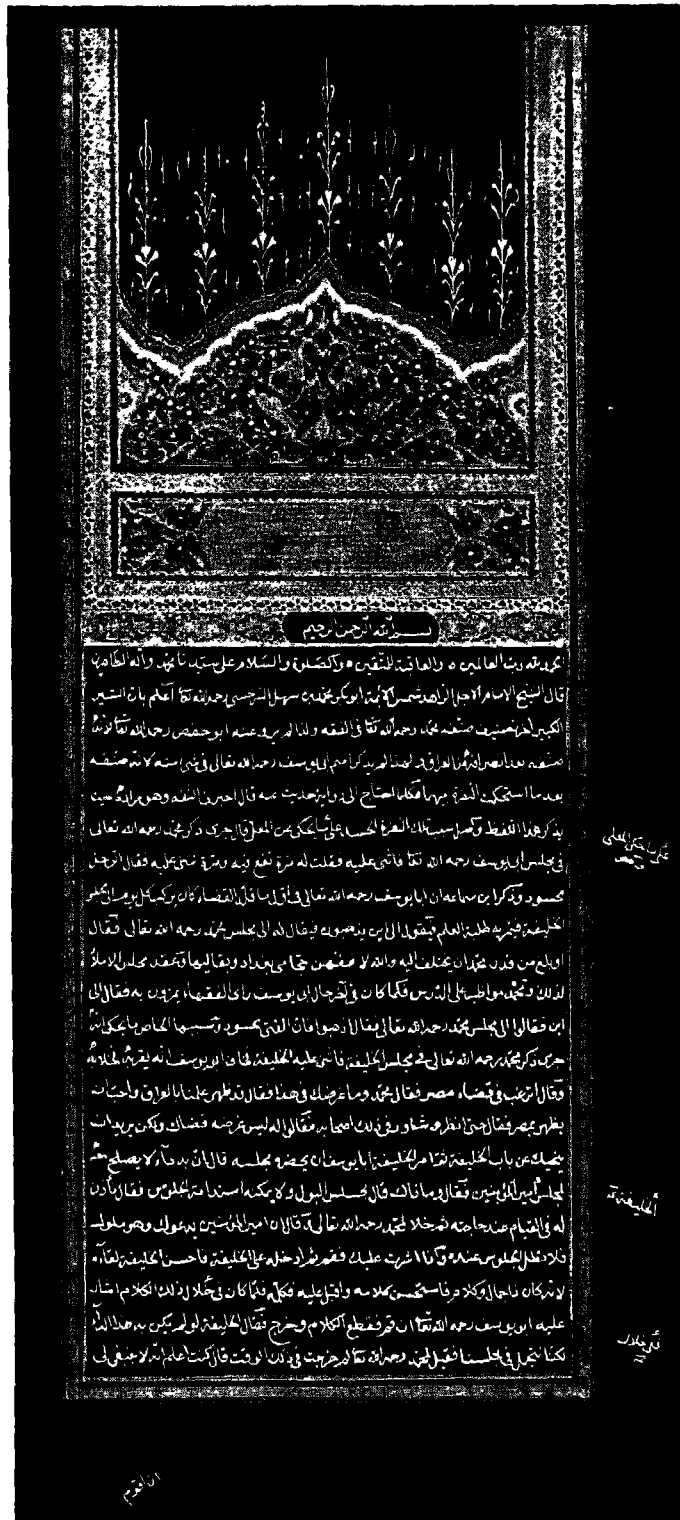 بسم الله الرحمن الرحيم
الحمد لله رب العالمين والعاقبة للمتقين والصلوة والسلام على سيدنا محمد وآله الطاهرين
قال الشيخ الامام الاجل الزاهد شمس الائمة ابو بكر محمد بن سهل السرخسي رحمه الله تعا اعلم بان السير
الكبير آخر تصنيف صنفه محمد رحمه الله تعا في الفقه ولذا لم يرو عنه ابو حفص رحمه الله تعا لانه
صنفه بعد انصرافه من العراق ولهذا لم يذكر اسم ابي يوسف رحمه الله تعالى في شئ منه لانه صنفه
بعد ما استحكمت النفرة بينهما فكلما احتاج الى رواية حديث عنه قال اخبرني الثقة وهو مراده حيث
يذكر هذا اللفظ واصل سبب تلك النفرة الحسد على ما يحكى عن المعلى قال جرى ذكر محمد رحمه الله تعالى
في مجلس ابي يوسف رحمه الله تعا فاثنى عليه فقلت له مرة تقع فيه ومرة تثنى عليه فقال الرجل
محسود وذكر ابن سماعة ان ابا يوسف رحمه الله تعالى في اول ما قلد القضاء كان يركب كل يوم الى مجلس
الخليفة فيمر به طلبة العلم فيقول الى اين يذهبون فيقال له الى مجلس محمد رحمه الله تعالى فقال
او بلغ من قدر محمد ان يختلف اليه والله لا فقهن حجامي بغداد وبقاليها وعقد مجلس الاملاء
لذلك ومحمد مواظب على الدرس فلما كان في آخر حال ابي يوسف راى الفقهاء يمرون به فقال الى
اين فقالوا الى مجلس محمد رحمه الله تعالى فقال اذهبوا فان الفتى محسود وسببها الخاص ما يحكى انه
جرى ذكر محمد رحمه الله تعالى في مجلس الخليفة فاثنى عليه الخليفة فخاف ابو يوسف انه يقربه فخلا به
وقال اترغب في قضاء مصر فقال محمد وما غرضك في هذا فقال قد ظهر علمنا بالعراق واحب ان
يظهر بمصر فقال حتى انظر وشاور في ذلك اصحابه فقالوا له ليس غرضه قضاك ولكن يريد ان
ينحيك عن باب الخليفة ثم امر الخليفة ابا يوسف ان يحضره مجلسه قال ان به داء لا يصلح معه
لمجلس امير المؤمنين فقال وما ذاك قال به سلس البول ولا يمكنه استدامة الجلوس فقال ناذن
له في القيام عند حاجته ثم خلا بمحمد رحمه الله تعالى وقال ان امير المؤمنين يدعوك وهو ملول
فلا تطل الجلوس عنده واذا اشرت عليك فقم ثم ادخله على الخليفة فاحسن الخليفة لقاءه
لانه كان ذا جمال وكلام فاستحسن كلامه واقبل عليه فكلمه فلما كان في خلال ذلك الكلام اشار
عليه ابو يوسف رحمه الله تعا ان قم فقطع الكلام وخرج فقال الخليفة لو لم يكن به هذا الداء
لكنا نتجمل في مجلسنا فقيل لمحمد رحمه الله تعا لم خرجت في ذلك الوقت قال كنت اعلم انه لا ينبغي لى